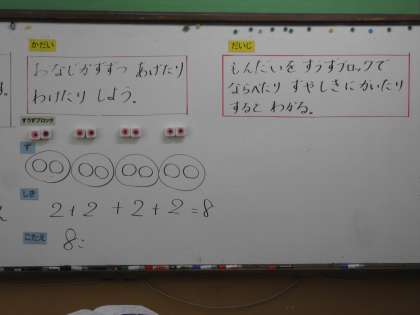 かだい
おなじかずずつ あげたり
わけたり しよう。
だいじ
もんだいを すうずブロックで
ならべたり ずやしきに かいたり
すると わかる。
す。
すうずブロック
ず
しき
2+2+2+2=8
こたえ
8